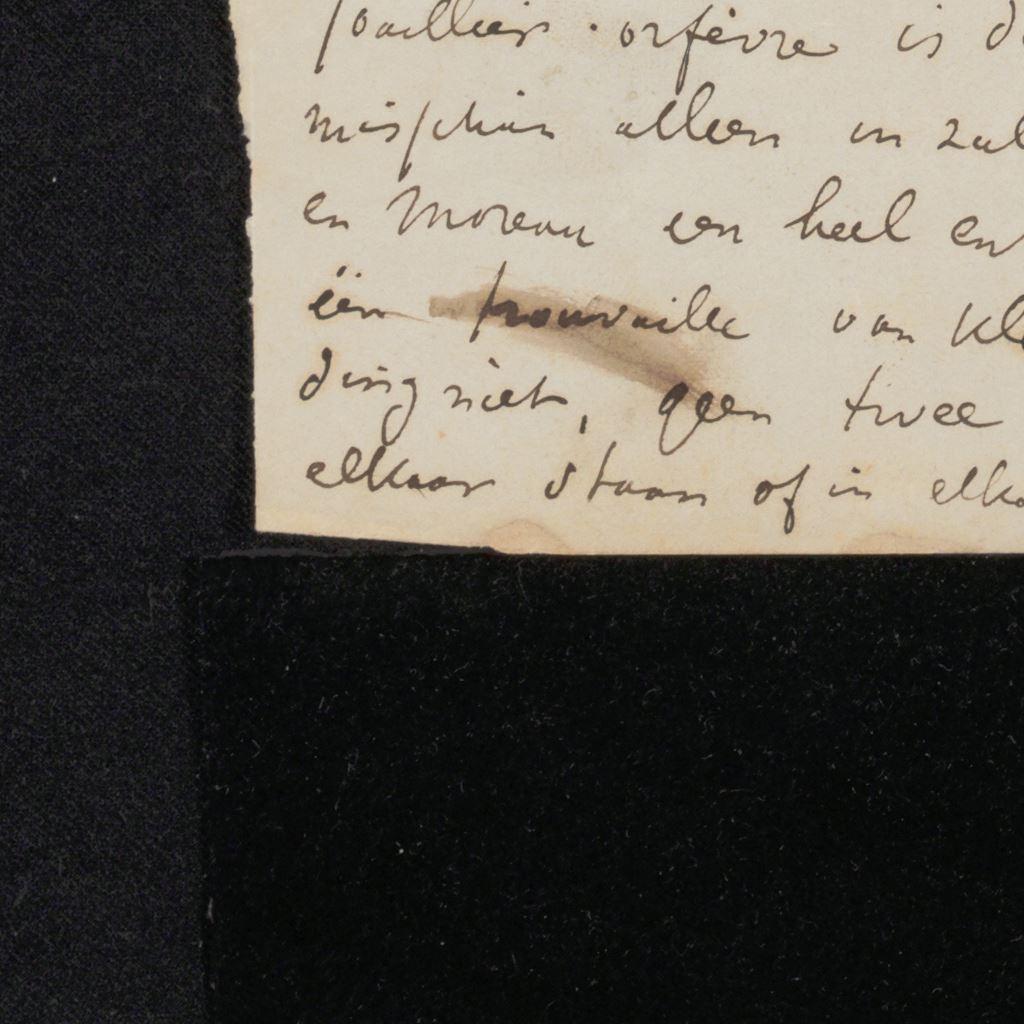 joaillier-orfèvre is d
misschien alleen in zul
en Moreau een heel en
één trouvaille van kle
ding niet, geen twee
elkaar staan of in elka